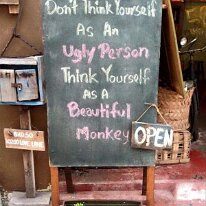 Don't Think Yourself
As An
Ugly Person
Think Yourself
As A
Beautiful
Monkey
OPEN